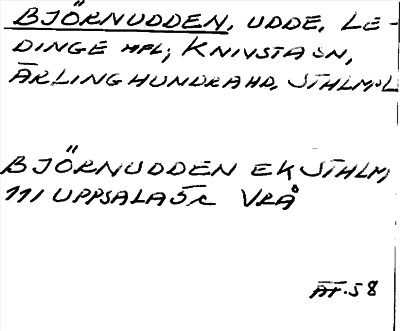 BJÖRNUDDEN, UDDE, LE-
DINGE HFL; KNIVSTA SN,
ÄRLINGHUNDRA HD, STHLMS L
BJÖRNUDDEN EK STHLM,
111 UPPSALA 5c VRÅ
ÄT.58